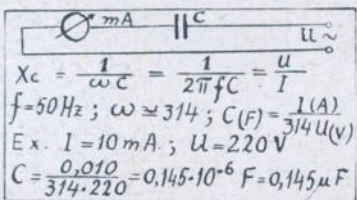 mA C U ~
Xc = 1/ωC = 1/2πfC = U/I
f=50Hz; ω≃314; C(F)= I(A)/314U(V)
Ex. I=10mA.; U=220V
C= 0,010/314·220 =0,145·10⁻⁶ F=0,145μF